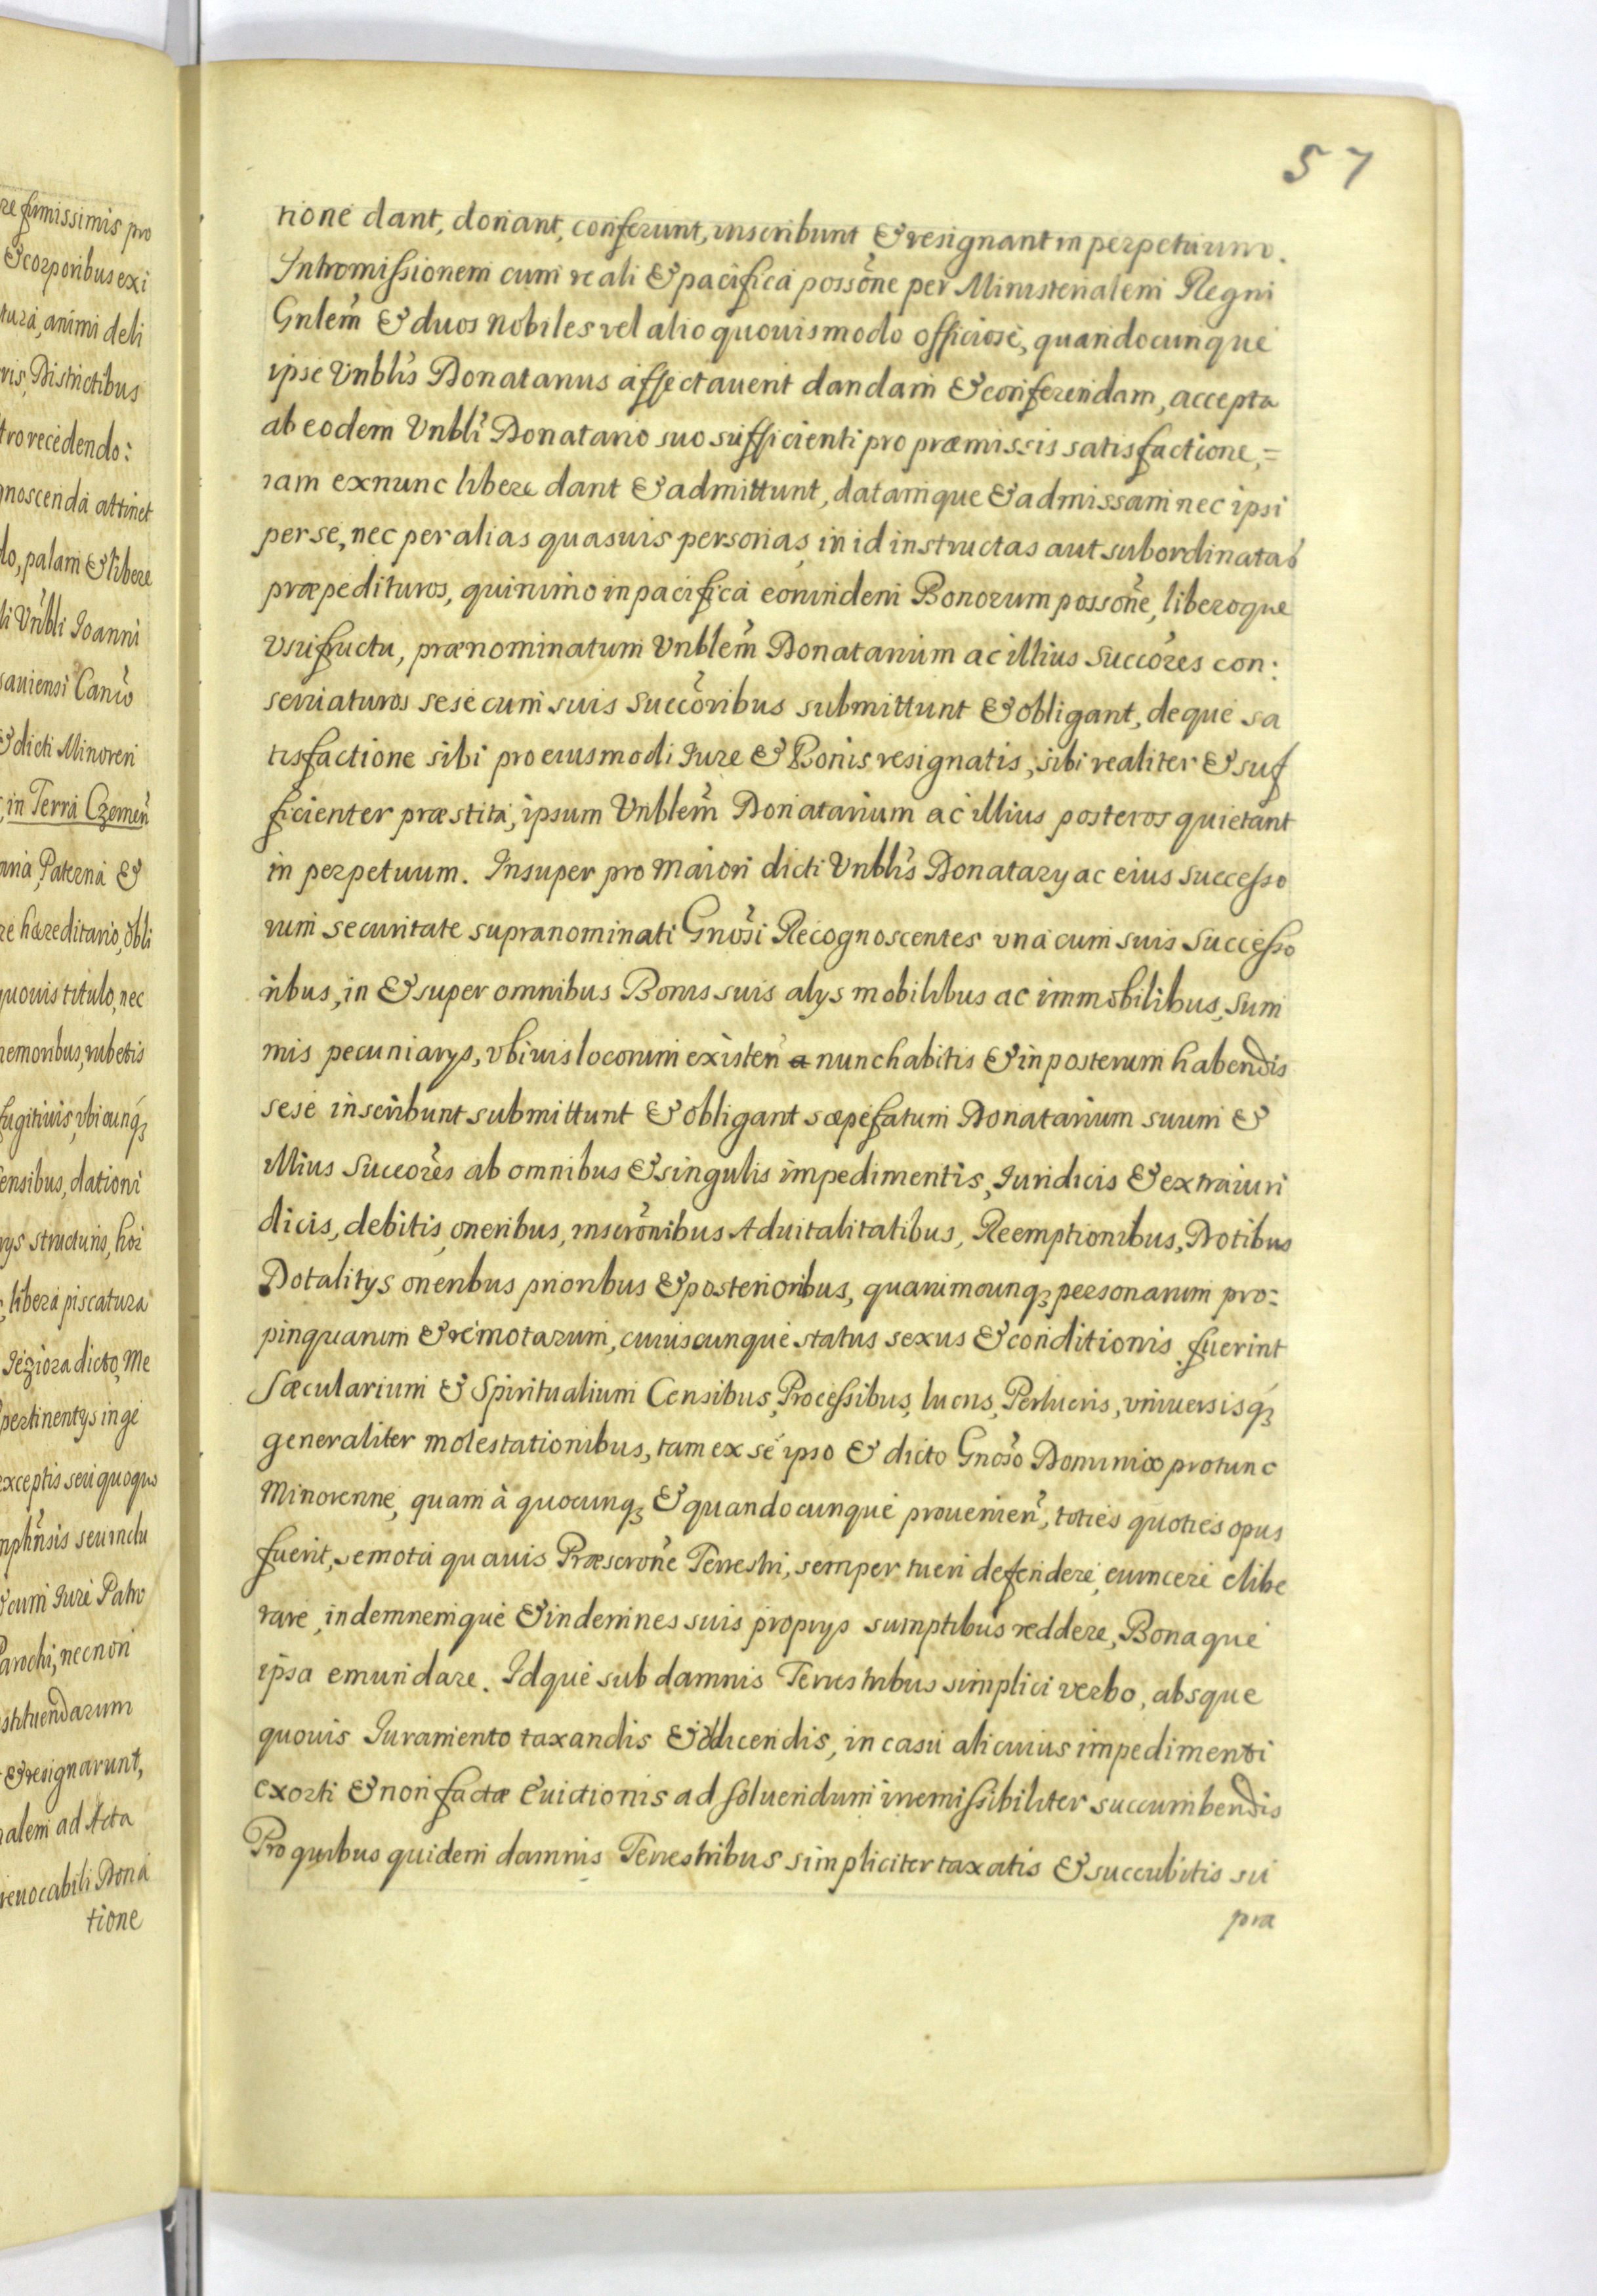 re firmissimis pro
& corporibus exi
tura, animi deli
vis, Districtibus
tro recedendo:
gnoscenda attinet
do, palam & libere
li Vnbli Ioanni
saviensi Canco
& dicti Minoren
in Terra Czernen
Paterna &
re hæreditario, obli
quovis titulo, nec
nemoribus, rubetis
fugitivis, vbicunq3
ensibus, dationi
structuris, hor
libera piscatura
Jeziora dicto, Me
pertinentys in ge
exceptis seu quoquo
seu inclu
cum Iure Patro
Parochi, necnon
stituendarum
& resignarunt,
alem ad Acta
revocabili Dona
tione
57
tione dant, donant, conferunt, inscribunt & resignant in perpetuum.
Intromissionem cum reali & pacifica possone per Ministerialem Regni
Gnlem & duos Nobiles vel alio quouismodo officiose, quandocunque
ipse Vnblis Donatarius affectauerit dandam & conferendam, accepta
ab eodem Vnbli Donatario suo sufficienti pro præmissis satisfactione,=
iam exnunc libere dant & admittunt, datamque & admissam nec ipsi
per se, nec per alias quasuis personas in id instructas aut subordinatas
præpedituros, quinimo in pacifica eorundem Bonorum possone, liberoque
vsufructu, prænominatum Vnblem Donatarium ac illius Succores con:
seruaturos sese cum suis Succoribus submittunt & obligant, deque sa
tisfactione sibi pro eiusmodi Iure & Bonis resignatis, sibi realiter & suf
ficienter præstita, ipsum Vnblem Donatarium ac illius posteros quietant
in perpetuum. Insuper pro maiori dicti Vnblis Donatary ac eius successo
rum securitate supranominati Gnosi Recognoscentes vna cum suis Successo
ribus, in & super omnibus Bonis suis alys mobilibus ac immobilibus, Sum
mis pecuniarys, vbiuis locorum existen a nunc habitis & in posterum habendis
sese inscribunt submittunt & obligant sæpefatum Donatarium suum &
illius Succores ab omnibus & singulis impedimentis, Iuridicis & extraiuri
dicis, debitis, oneribus, inscronibus Aduitalitatibus, Reemptionibus, Dotibus
Dotalitys oneribus prioribus & posterioribus, quarumcunq3 personarum pro:
pinquarum & remotarum, cuiuscunque status sexus & conditionis fuerint
Sæcularium & Spiritualium Censibus, Processibus, lucris, Perlucris, vniuersisq3
generaliter molestationibus, tam ex se ipso & dicto Gnoso Dominico protunc
Minorenne, quam à quocunq3 & quandocunque prouenien, toties quoties opus
fuerit, semota quavis Præscrone Terrestri, semper tueri defendere, euincere elibe
rare, indemnemque & indemnes suis proprys sumptibus reddere, Bonaque
ipsa emundare. Idque sub damnis Terrestribus simplici verbo, absque
quouis Iuramento taxandis & edicendis, in casu alicuius impedimenti
exorti & non factæ Euictionis ad soluendum irremissibiliter succumbendis
Pro quibus quidem damnis Terrestribus simpliciter taxatis & succubitis su
pra